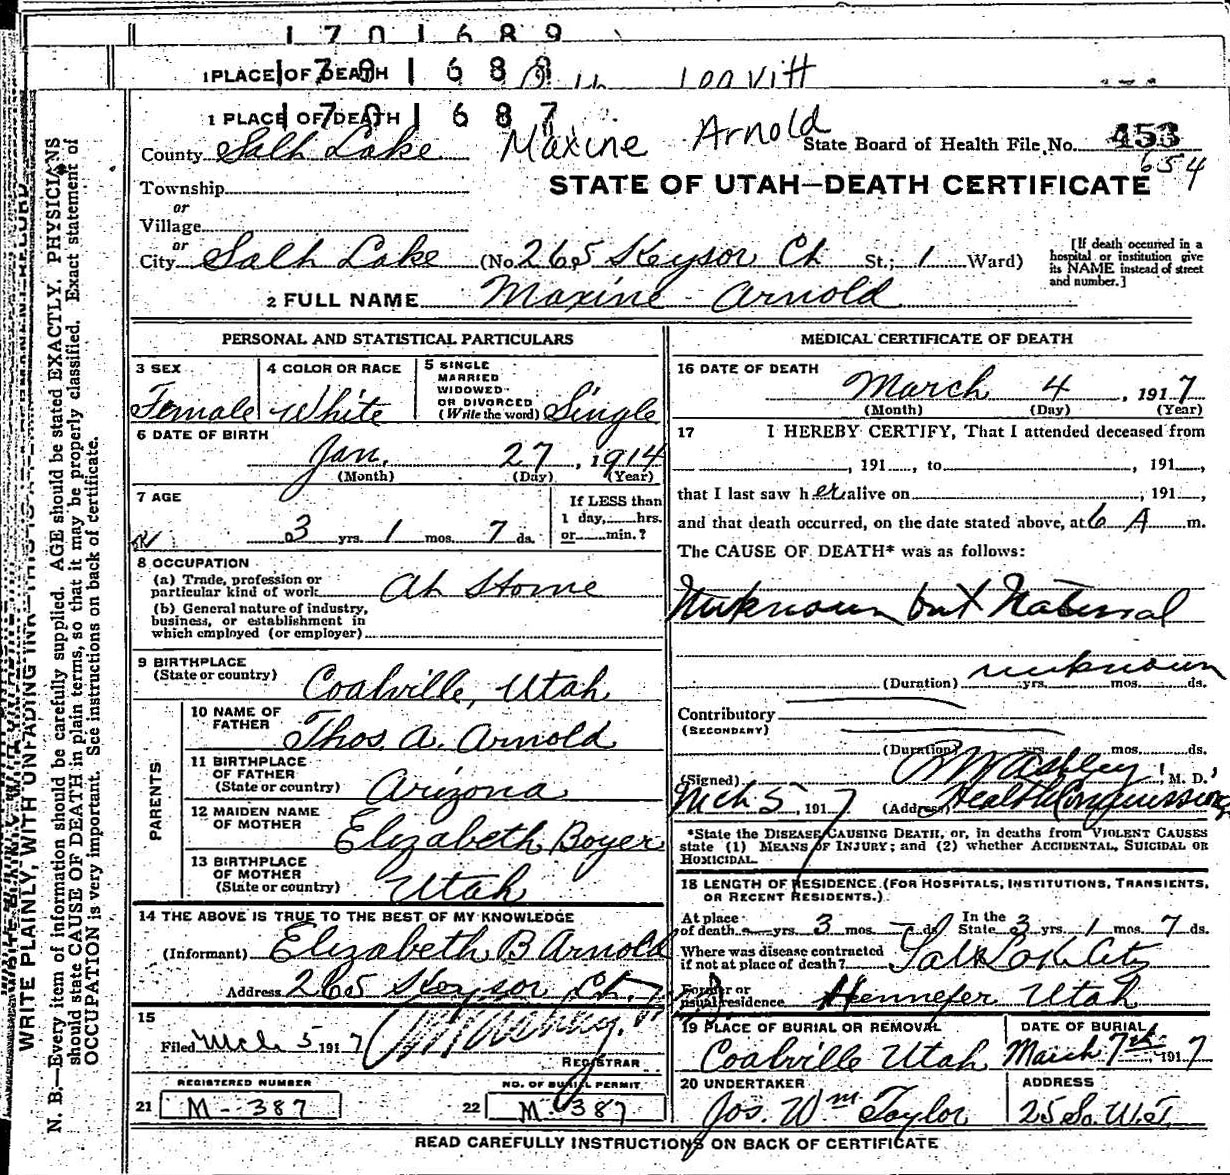 1701689
1 PLACE OF DEATH 1701688 Leavitt
1 PLACE OF DEATH 1701687
County Salt Lake Maxine Arnold State Board of Health File No. 453
654
Township
or
STATE OF UTAH—DEATH CERTIFICATE
Village
or
City Salt Lake (No. 265 Keysor Ct St.; 1 Ward)
[If death occurred in a hospital or institution give its NAME instead of street and number.]
2 FULL NAME Maxine Arnold
PERSONAL AND STATISTICAL PARTICULARS
3 SEX
Female
4 COLOR OR RACE
White
5 SINGLE
MARRIED
WIDOWED
OR DIVORCED
(Write the word) Single
6 DATE OF BIRTH
Jan. 27, 1914
(Month) (Day) (Year)
7 AGE
3 yrs. 1 mos. 7 ds.
If LESS than
1 day, hrs.
or min.?
8 OCCUPATION
(a) Trade, profession or
particular kind of work At Home
(b) General nature of industry,
business, or establishment in
which employed (or employer)
9 BIRTHPLACE
(State or country) Coalville, Utah
PARENTS
10 NAME OF
FATHER Thos. A. Arnold
11 BIRTHPLACE
OF FATHER
(State or country) Arizona
12 MAIDEN NAME
OF MOTHER Elizabeth Boyer
13 BIRTHPLACE
OF MOTHER
(State or country) Utah
14 THE ABOVE IS TRUE TO THE BEST OF MY KNOWLEDGE
(Informant) Elizabeth B Arnold
Address 265 Keysor Ct.
15
Filed Mch 5 1917
REGISTRAR
REGISTERED NUMBER
21 M-387
NO. OF BURIAL PERMIT
22 M-387
MEDICAL CERTIFICATE OF DEATH
16 DATE OF DEATH
March 4, 1917
(Month) (Day) (Year)
17 I HEREBY CERTIFY, That I attended deceased from
, 191 , to , 191 ,
that I last saw her alive on , 191 ,
and that death occurred, on the date stated above, at 6 A m.
The CAUSE OF DEATH* was as follows:
Unknown but Natural
unknown
(Duration) yrs. mos. ds.
Contributory
(SECONDARY)
(Duration) yrs. mos. ds.
(Signed) M. D.
Mch 5, 1917 (Address) Health Commissioner
*State the DISEASE CAUSING DEATH, or, in deaths from VIOLENT CAUSES
state (1) MEANS OF INJURY; and (2) whether ACCIDENTAL, SUICIDAL OR
HOMICIDAL.
18 LENGTH OF RESIDENCE (FOR HOSPITALS, INSTITUTIONS, TRANSIENTS,
OR RECENT RESIDENTS.)
At place
of death yrs. 3 mos. ds. In the
State 3 yrs. 1 mos. 7 ds.
Where was disease contracted
if not at place of death? Salt Lake City
Former or
usual residence Hennefer Utah
19 PLACE OF BURIAL OR REMOVAL
Coalville Utah
DATE OF BURIAL
March 7th, 1917
20 UNDERTAKER
Jos. Wm Taylor
ADDRESS
25 So. W.T.
READ CAREFULLY INSTRUCTIONS ON BACK OF CERTIFICATE
WRITE PLAINLY, WITH UNFADING INK
N. B.—Every item of information should be carefully supplied. AGE should be stated EXACTLY. PHYSICIANS
should state CAUSE OF DEATH in plain terms, so that it may be properly classified. Exact statement of
OCCUPATION is very important. See instructions on back of certificate.